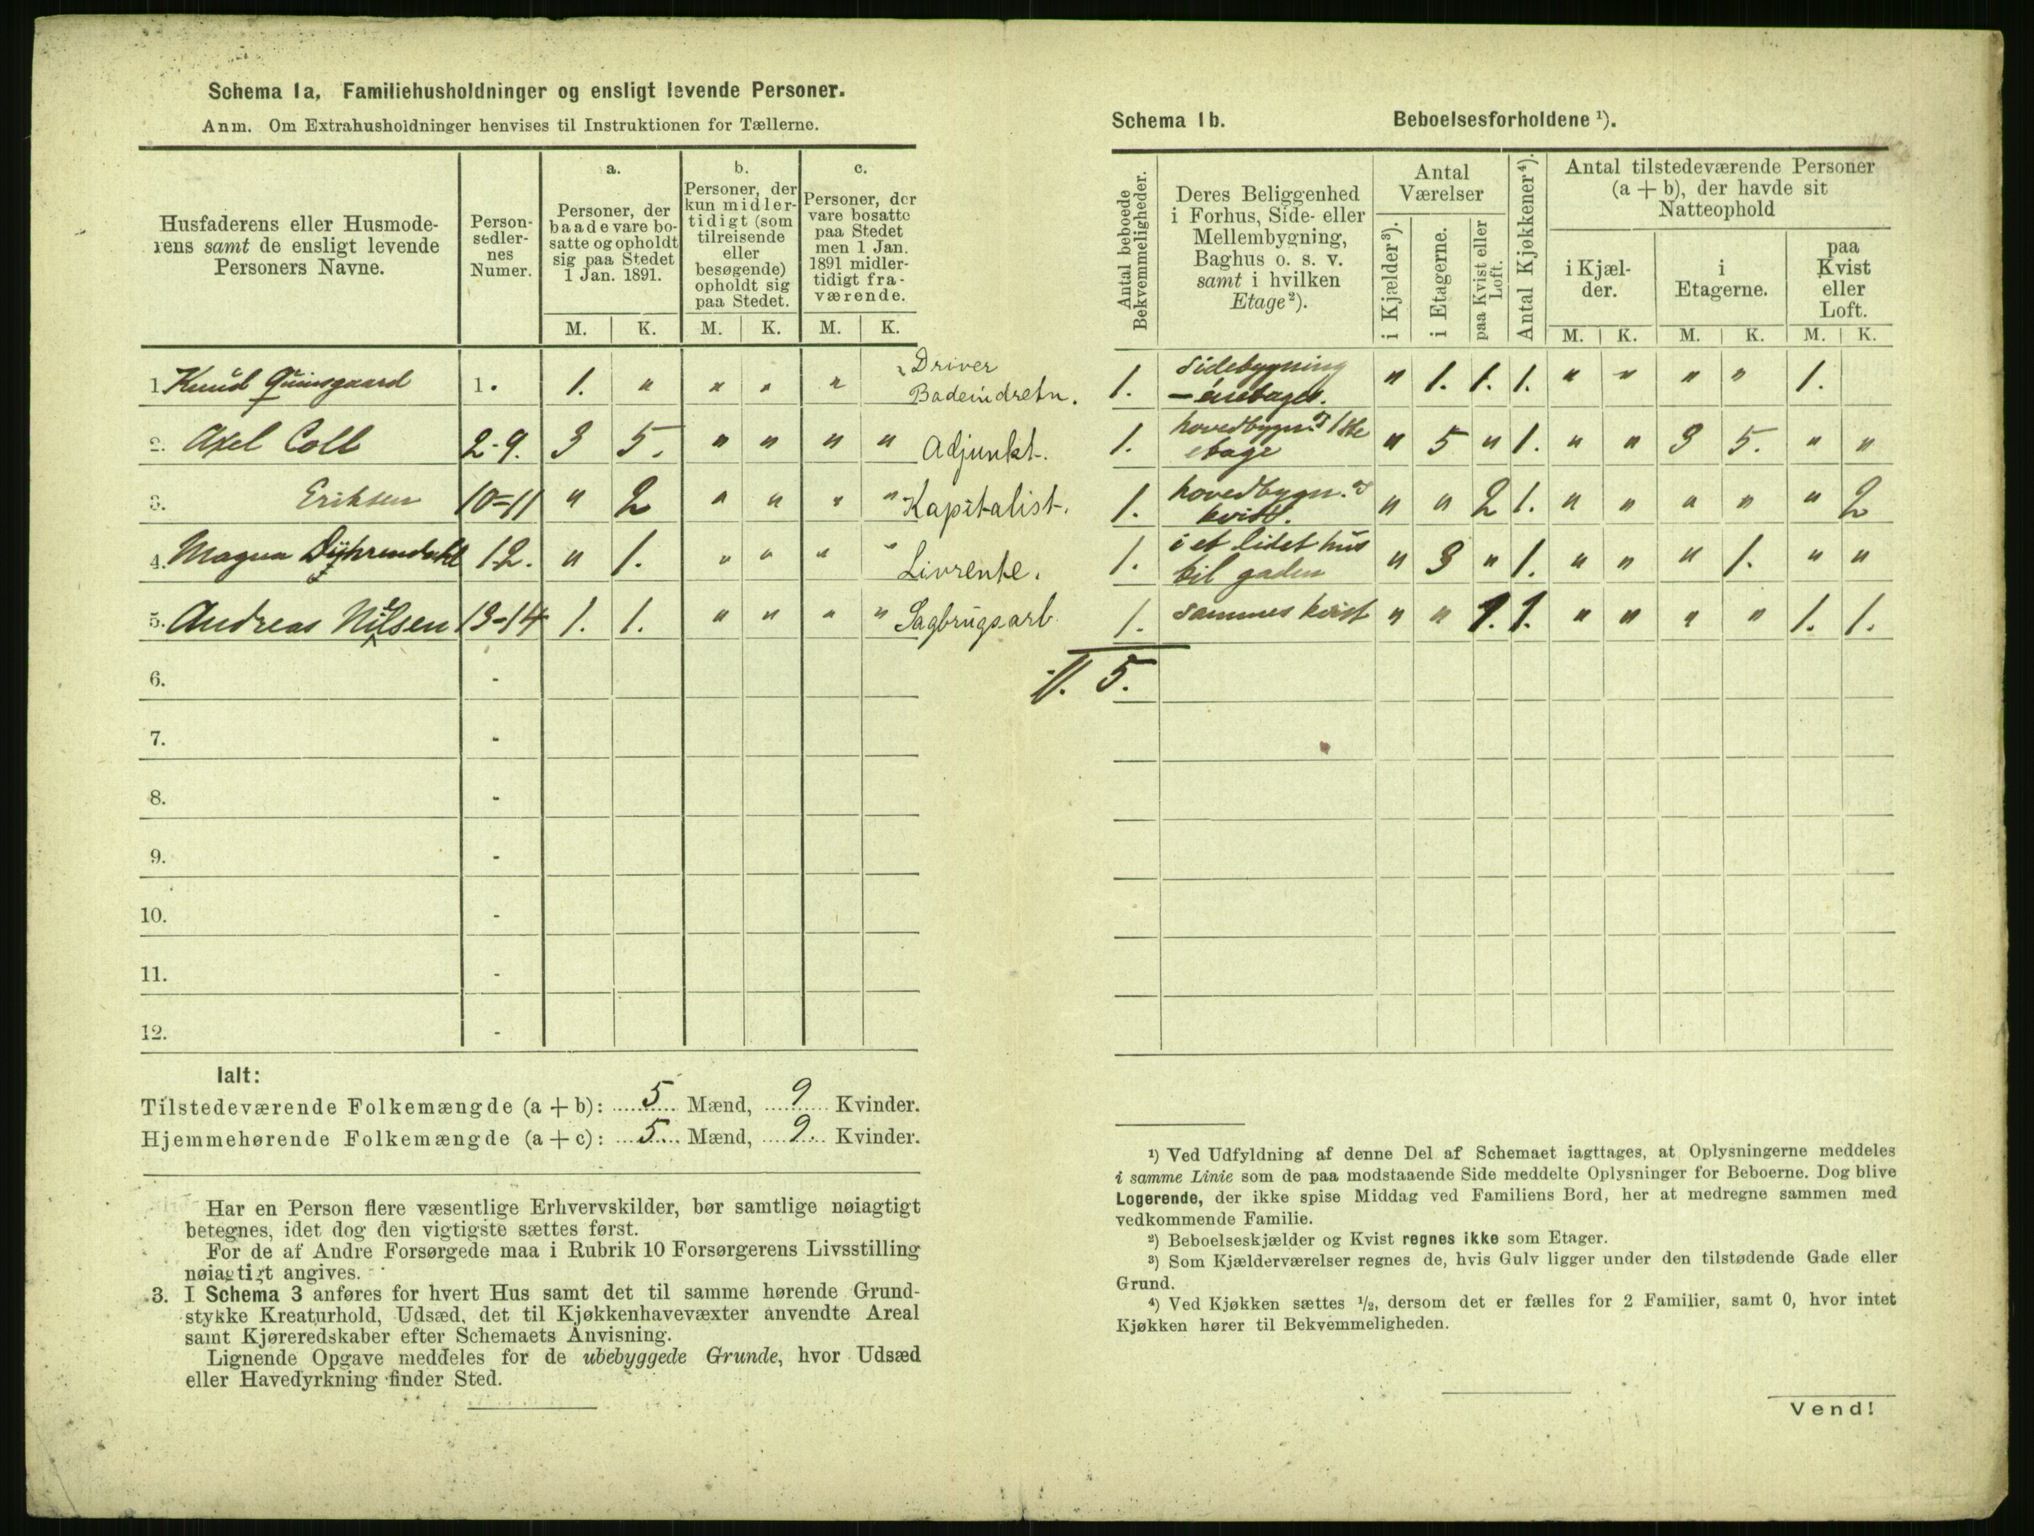 Schema 1a. Familiehusholdninger og ensligt levende Personer.
Anm. Om Extrahusholdninger henvises til Instruktionen for Tællerne.
Husfaderens eller Husmode-
rens samt de ensligt levende
Personers Navne.
Person-
sedler-
nes
Numer.
a.
Personer, der
baade vare bo-
satte og opholdt
sig paa Stedet
1 Jan. 1891.
b.
Personer, der
kun midler-
tidigt (som
tilreisende
eller
besøgende)
opholdt sig
paa Stedet.
c.
Personer, der
vare bosatte
paa Stedet
men 1 Jan.
1891 midler-
tidigt fra-
værende.
M. K. M. K. M. K.
1. Knud Quinsgaard 1. 1. " " " " Driver
Badeindretn.
2. Axel Coll 2-9. 3 5. " " " " Adjunkt.
3. Eriksen 10-11 " 2 " " " " Kapitalist.
4. Magna Dührendahl 12. " 1. " " " " Livrente.
5. Andreas Nilsen 13-14 1. 1. " " " " Sagbrugsarb.
6. -
7. -
8. -
9. -
10. -
11. -
12. -
Ialt:
Tilstedeværende Folkemængde (a + b): 5 Mænd, 9 Kvinder.
Hjemmehørende Folkemængde (a + c): 5 Mænd, 9 Kvinder.
Har en Person flere væsentlige Erhvervskilder, bør samtlige nøiagtigt
betegnes, idet dog den vigtigste sættes først.
For de af Andre Forsørgede maa i Rubrik 10 Forsørgerens Livsstilling
nøiagtigt angives.
3. I Schema 3 anføres for hvert Hus samt det til samme hørende Grund-
stykke Kreaturhold, Udsæd, det til Kjøkkenhavevæxter anvendte Areal
samt Kjøreredskaber efter Schemaets Anvisning.
Lignende Opgave meddeles for de ubebyggede Grunde, hvor Udsæd
eller Havedyrkning finder Sted.
Schema 1b. Beboelsesforholdene ¹).
Antal beboede
Bekvemmeligheder.
Deres Beliggenhed
i Forhus, Side- eller
Mellembygning,
Baghus o. s. v.
samt i hvilken
Etage ²).
Antal
Værelser
i Kjælder ³).
i Etagerne.
paa Kvist eller
Loft.
Antal Kjøkkener ⁴).
Antal tilstedeværende Personer
(a + b), der havde sit
Natteophold
i Kjæl-
der.
i
Etagerne.
paa
Kvist
eller
Loft.
M. K. M. K. M. K.
1. Sidebygning
" 1. 1. 1. " " " " 1.
1. hovedbygn. 1ste
etage " 5 " 1. " " 3 5. " "
1. hovedbygn.
kvist. " " 2 1. " " " " " 2
1. i et lidet hus
til gaden " 3 " 1. " " " 1. " "
1. sammes kvist " " 1. 1. " " " " 1. 1.
5.
¹) Ved Udfyldning af denne Del af Schemaet iagttages, at Oplysningerne meddeles
i samme Linie som de paa modstaaende Side meddelte Oplysninger for Beboerne. Dog blive
Logerende, der ikke spise Middag ved Familiens Bord, her at medregne sammen med
vedkommende Familie.
²) Beboelseskjælder og Kvist regnes ikke som Etager.
³) Som Kjælderværelser regnes de, hvis Gulv ligger under den tilstødende Gade eller
Grund.
⁴) Ved Kjøkken sættes ½, dersom det er fælles for 2 Familier, samt 0, hvor intet
Kjøkken hører til Bekvemmeligheden.
Vend!